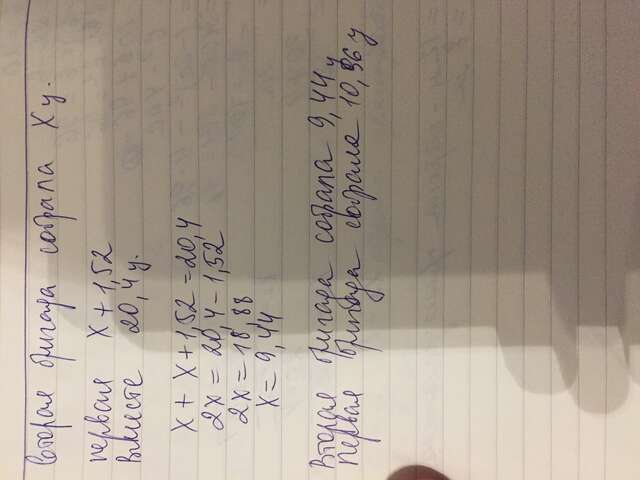 Вторая бригада собрала Xц.
первая X + 1,52
Вместе 20,4ц.
X + X + 1,52 = 20,4
2X = 20,4 - 1,52
2X = 18,88
X = 9,44
Вторая бригада собрала 9,44 ц
Первая бригада собрала 10,96 ц